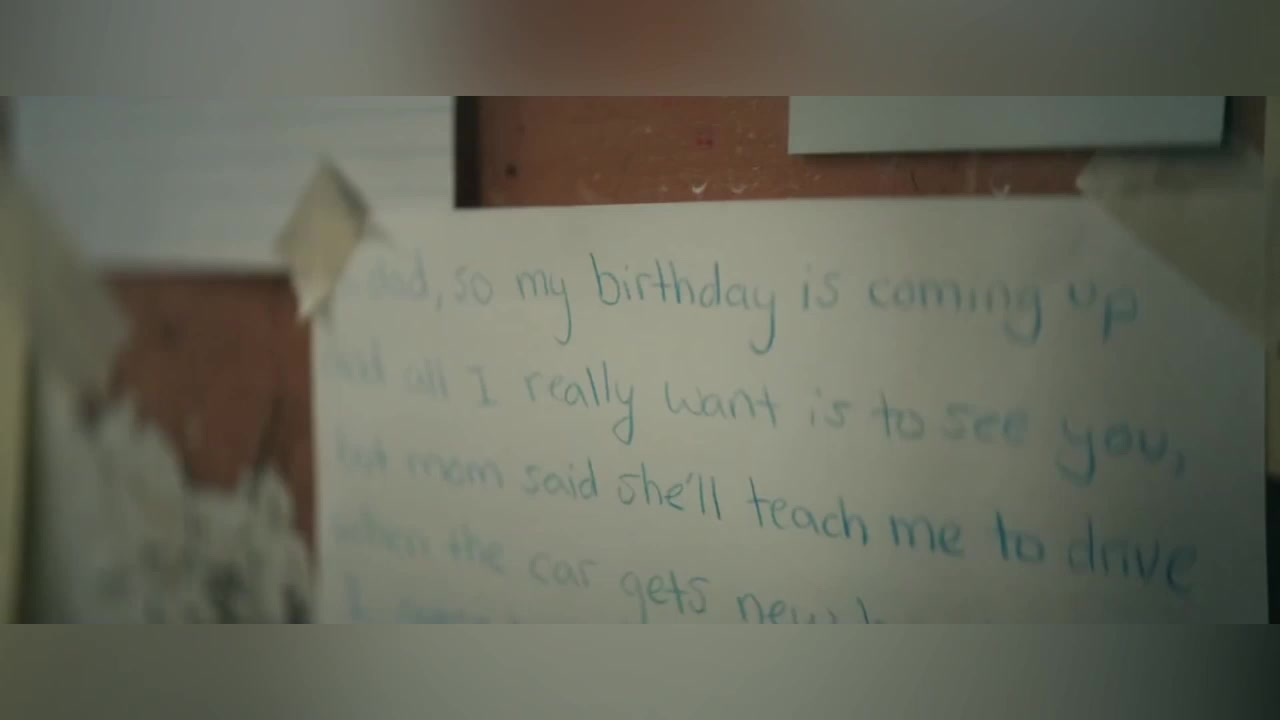 dad, so my birthday is coming up
and all I really want is to see you,
but mom said she'll teach me to drive
when the car gets new
I